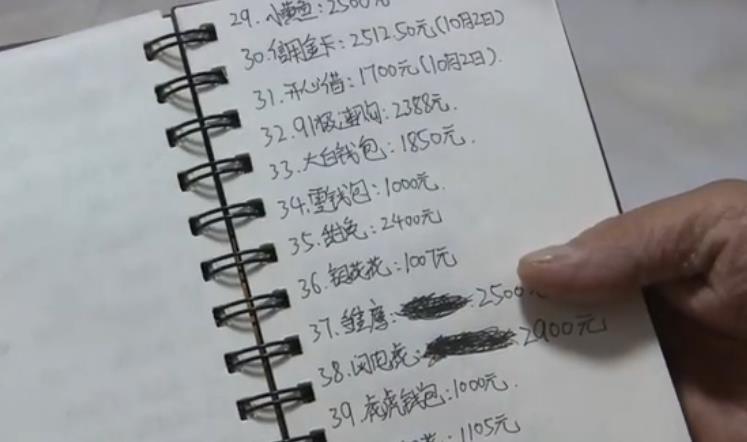 29. 小黄鱼:2500元
30.信用金卡:2512.50元(10月2日)
31.开心借:1700元(10月2日).
32.91极速购:2388元.
33.大白钱包:1850元.
34.雪钱包:1000元.
35.甜兔:2400元
36.钼花花:1007元
37.维度: 2500
38.闪电虎: 2900元
39.虎虎钱包:1000元.
花:1105元